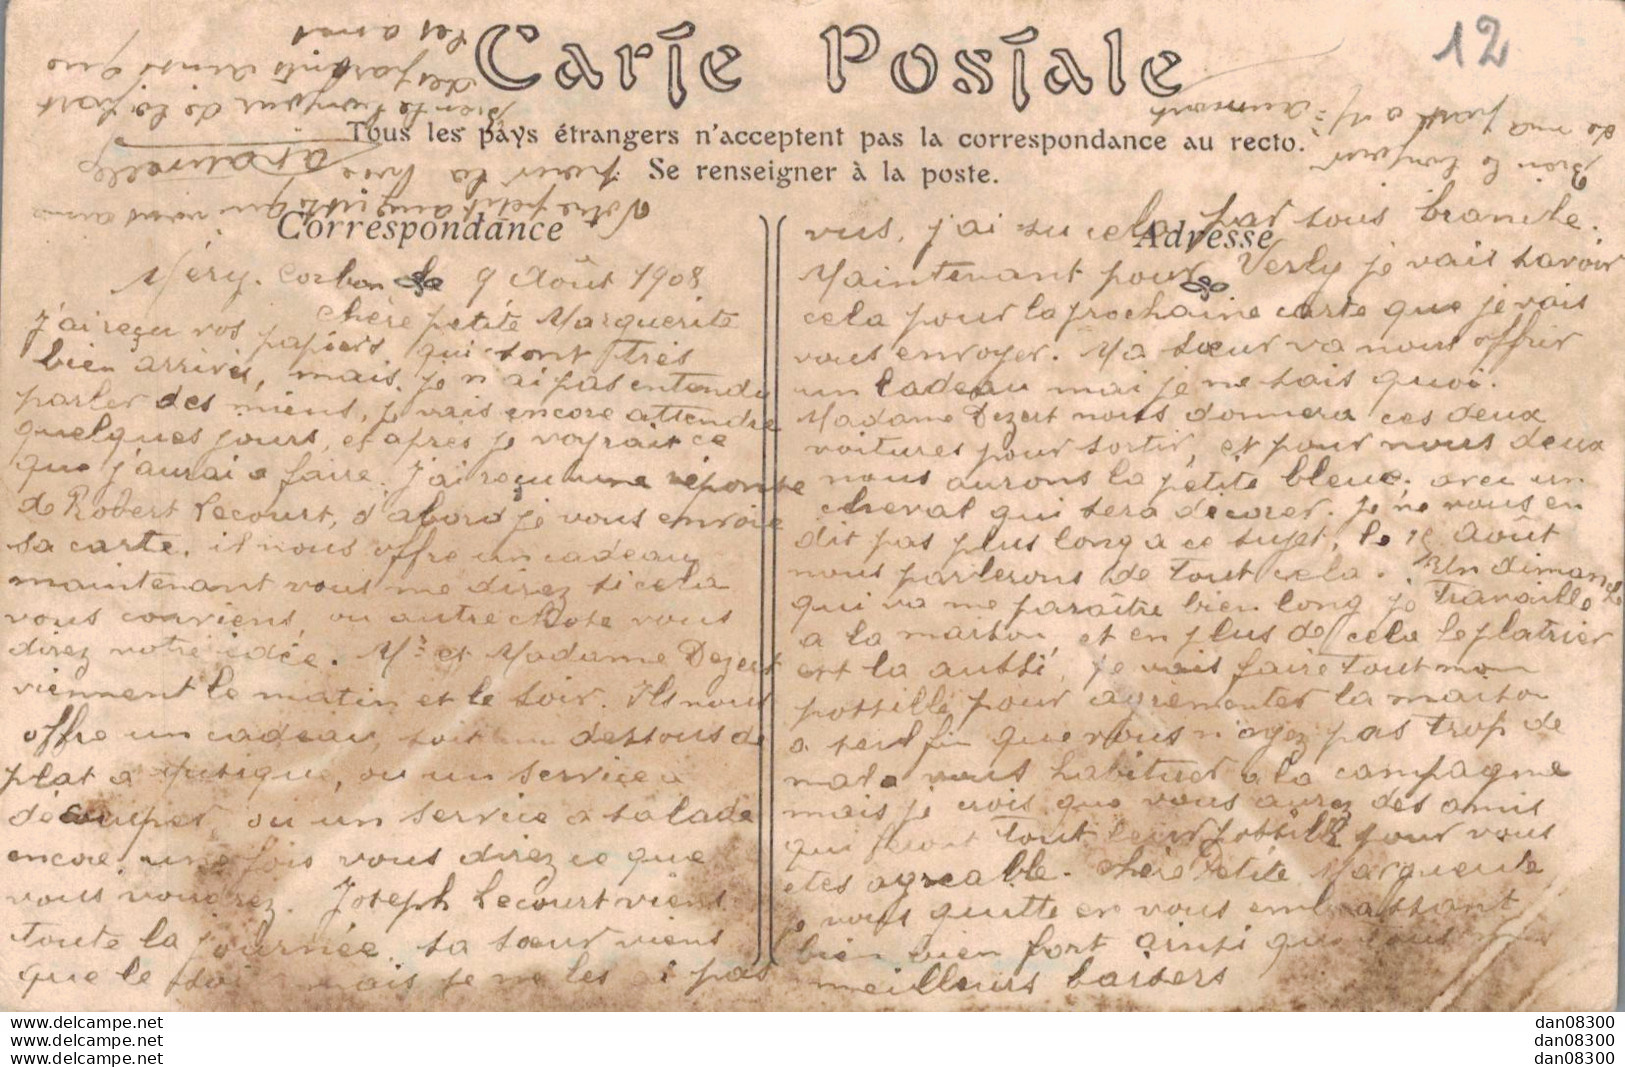 Carte Postale
12
Tous les pays étrangers n'acceptent pas la correspondance au recto.
Se renseigner à la poste.
Correspondance
Adresse
Méry-Corbon le 9 Août 1908
Chère petite Marguerite
J'ai reçu vos papiers qui sont très
bien arrivés, mais je n'ai pas entendu
parler des miens, je vais encore attendre
quelques jours, et après je voyrait ce
que j'aurai a faire. J'ai reçu une réponse
de Robert Lecourt, d'abord je vous envoie
sa carte. il nous offre un cadeau
maintenant vous me direz si cela
vous convient, ou autre chose vous
direz notre idée. Mr et Madame Dezert
viennent le matin et le soir. Ils nous
offre un cadeau, soit un dessous de
plat a musique, ou un service a
découper, ou un service a salade
encore une fois vous direz ce que
vous voudrez. Joseph Lecourt viens
toute la journée. sa sœur viens
que le soir mais je ne les ai pas
vus, j'ai su cela par sous branche.
Maintenant pour Verly je vais savoir
cela pour la prochaine carte que je vais
vous envoyer. Ma sœur va nous offrir
un cadeau mai je ne sais quoi.
Madame Dezert nous donnera ces deux
voitures pour sortir, et pour nous deux
nous aurons la petite bleue. avec un
cheval qui sera décorer. je ne vous en
dit pas plus long a ce sujet, le 15 Août
nous parlerons de tout cela. Un dimanche
qui va me paraître bien long je travaille
a la maison, et en plus de cela le platrier
est la aussi, je vais faire tout mon
possible pour agrementer la maison
a seul fin que vous n'ayez pas trop de
mal a vous habituer a la campagne
mais je crois que vous aurez des amis
qui feront tout leur possible pour vous
etes agreable. Chère Petite Marguerite
je vous quitte en vous embrassant
bien bien fort ainsi que tous
meilleurs baisers
Votre petit auguste qui vous aime
pour la vie
bien le bonjour de la part
des parents ainsi que
les amis
Bien le bonjour
de ma part a Mr
www.delcampe.net
www.delcampe.net
www.delcampe.net
dan08300
dan08300
dan08300